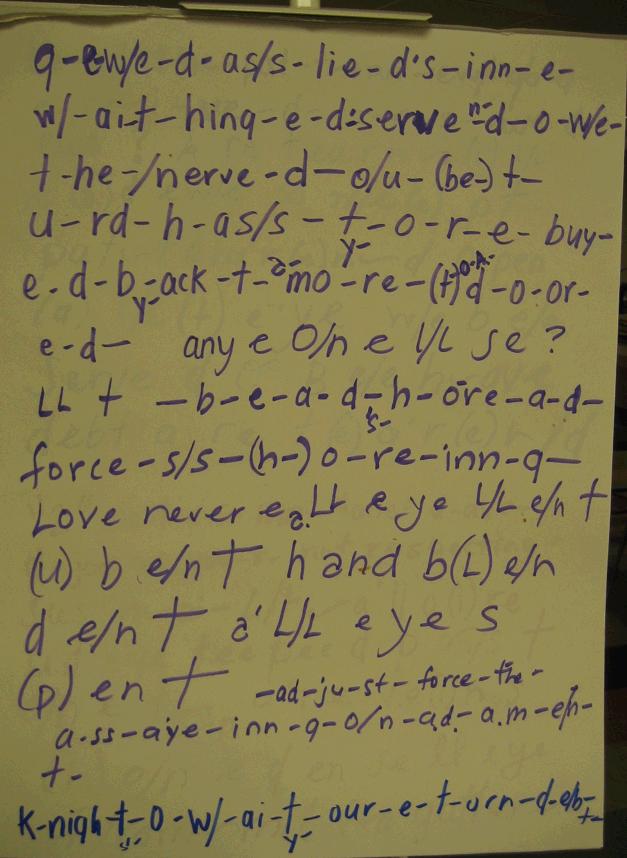 q-ew/e-d-as/s-lie-d's-inn-e-
w/-ai-t-hinq-e-d-serve n-d-o-w/e-
t-he-/nerve-d-o/u-(be-)t-
u-rd-h-as/s-t-o-r-e-buy-
y-
e-d-b-ack-t-a-mo-re-(t)d-o-or-
y-
e-d- any e O/n e L/L se?
LL t -b-e-a-d-h-ore-a-d-
s-
force-s/s-(h-)o-re-inn-q-
Love never ea LL e ye L/L e/n t
(u) b e/n t h and b(L) e/n
d e/n t a' L/L e ye s
(p) en t -ad-ju-st-force-the-
a-ss-aye-inn-q-o/n-ad-a.m-e/n-
t-
k-nigh t-o-w/-ai-t-our-e-t-urn-d-e/b-
y-
t-